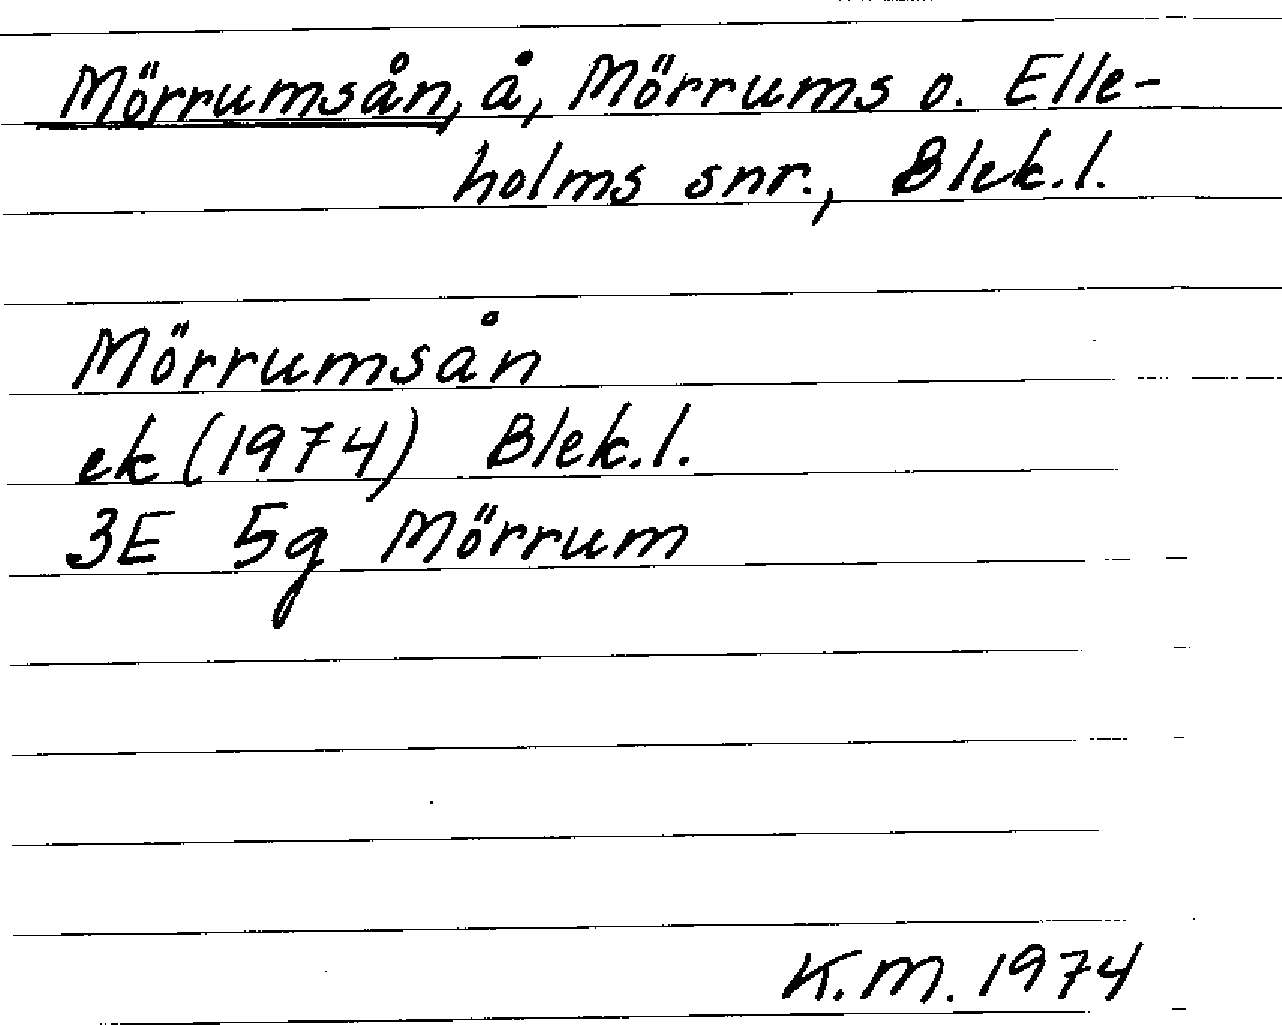 Mörrumsån, å, Mörrums o. Elle-
holms snr., Blek.l.
Mörrumsån
ek (1974) Blek.l.
3E 5g Mörrum
K.M. 1974